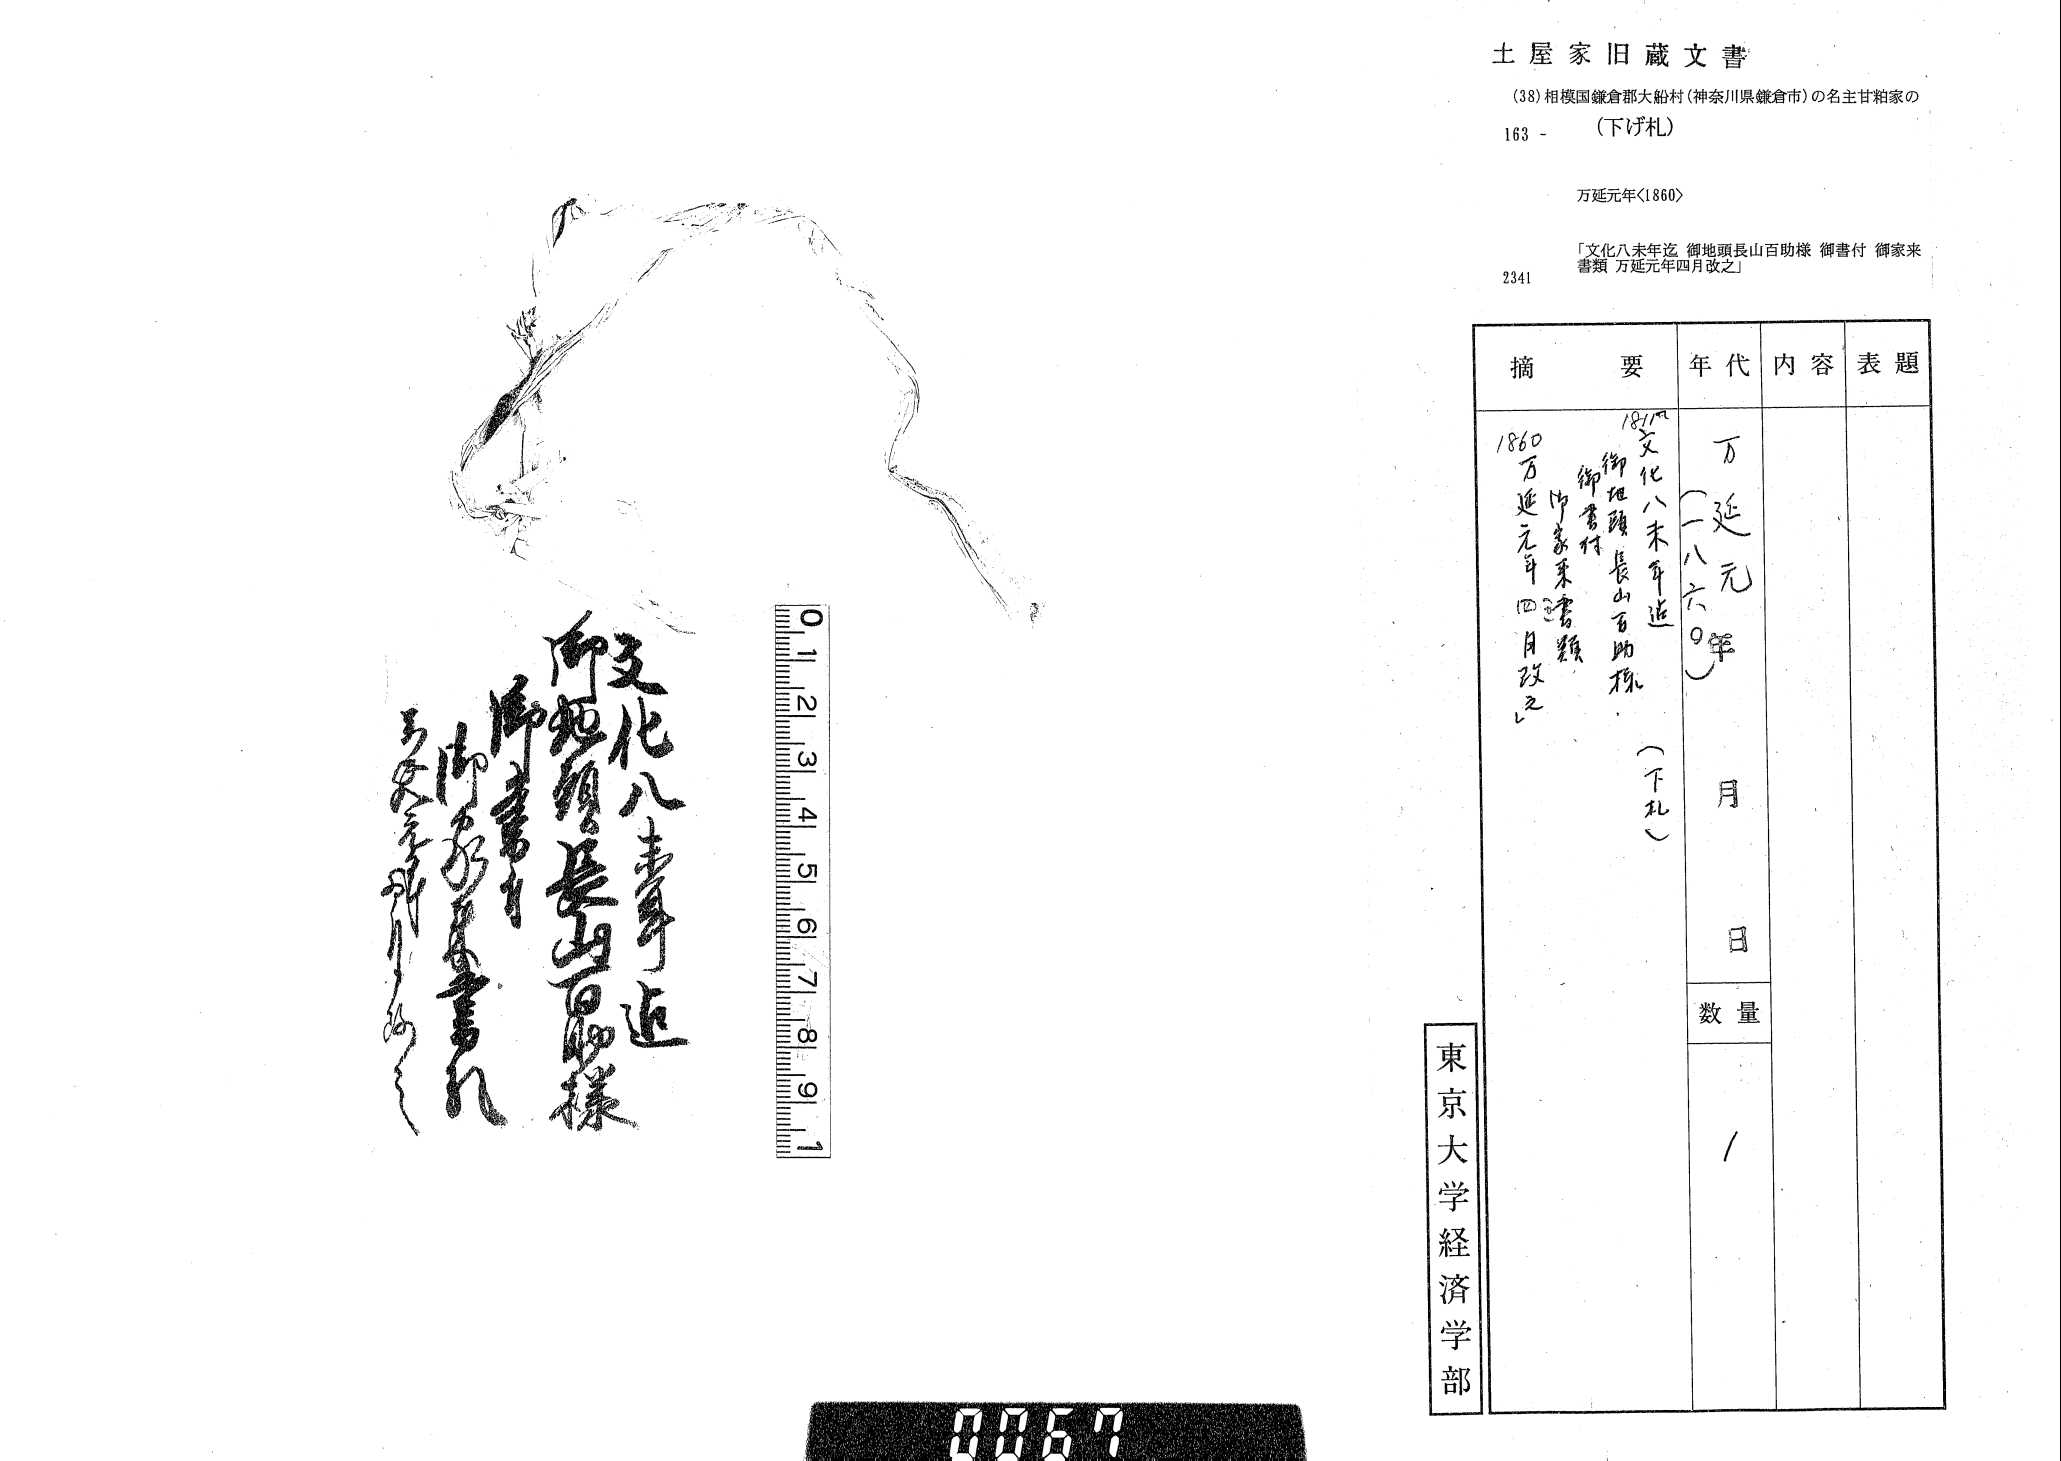 土屋家旧蔵文書
(38)相模国鎌倉郡大船村(神奈川県鎌倉市)の名主甘粕家の
163 -
(下げ札)
万延元年<1860>
「文化八未年迄 御地頭長山百助様 御書付 御家来
書類 万延元年四月改之」
2341
表題
内容
年代
摘要
万延元年
(一八六〇)
月
日
数量
1
1811
文化八未年迄
御地頭長山百助様
御書付
御家来書類
1860
万延元年四月改之」
(下札)
東京大学経済学部
文化八未年迄
御地頭長山百助様
御書付
御家来書類
万延元年四月改之
0 1 2 3 4 5 6 7 8 9 1
0067